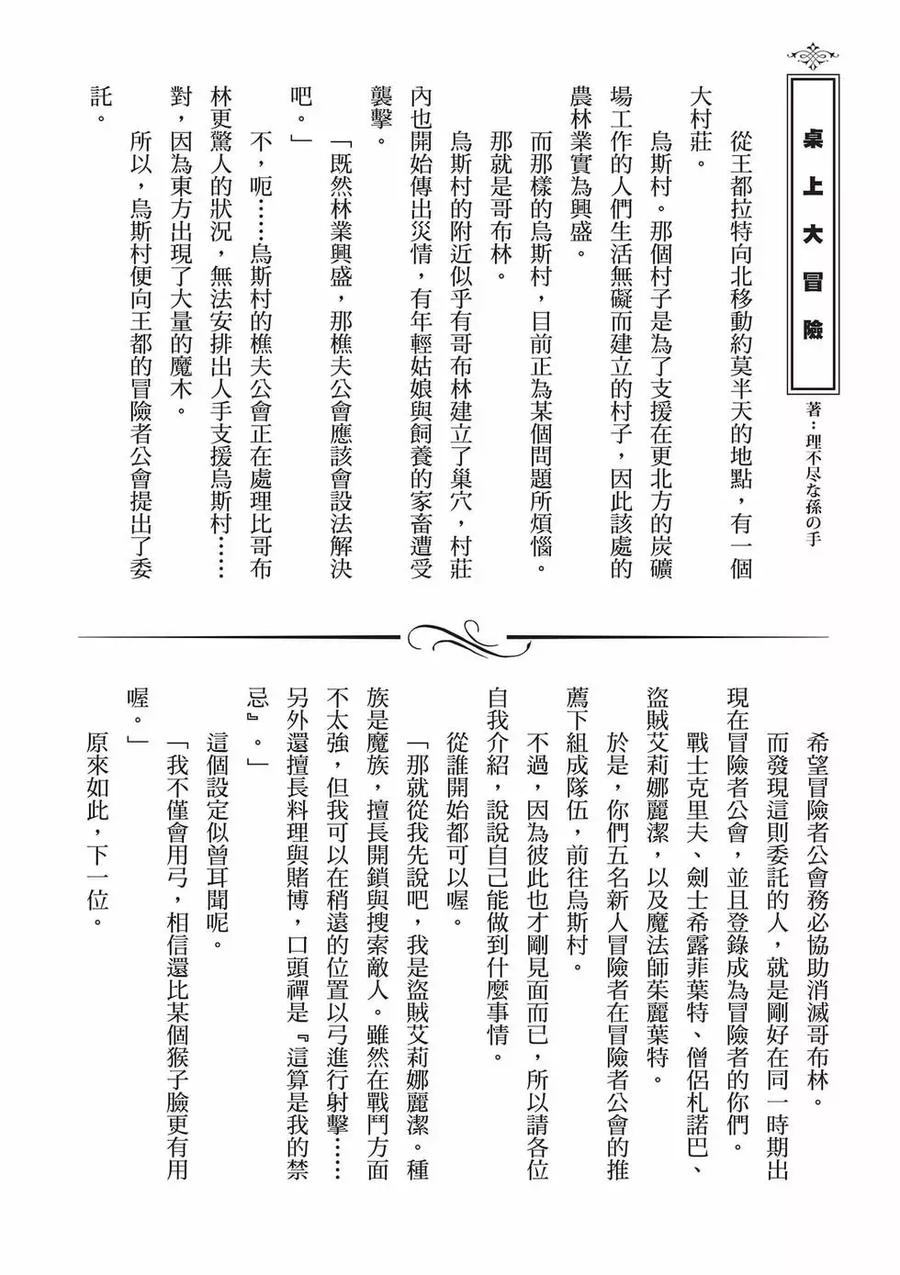 桌上大冒險
著：理不尽な孫の手
從王都拉特向北移動約莫半天的地點，有一個
大村莊。
烏斯村。那個村子是為了支援在更北方的炭礦
場工作的人們生活無礙而建立的村子，因此該處的
農林業實為興盛。
而那樣的烏斯村，目前正為某個問題所煩惱。
那就是哥布林。
烏斯村的附近似乎有哥布林建立了巢穴，村莊
內也開始傳出災情，有年輕姑娘與飼養的家畜遭受
襲擊。
「既然林業興盛，那樵夫公會應該會設法解決
吧。」
不，呃……烏斯村的樵夫公會正在處理比哥布
林更驚人的狀況，無法安排出人手支援烏斯村……
對，因為東方出現了大量的魔木。
所以，烏斯村便向王都的冒險者公會提出了委
託。
希望冒險者公會務必協助消滅哥布林。
而發現這則委託的人，就是剛好在同一時期出
現在冒險者公會，並且登錄成為冒險者的你們。
戰士克里夫、劍士希露菲葉特、僧侶札諾巴、
盜賊艾莉娜麗潔，以及魔法師茱麗葉特。
於是，你們五名新人冒險者在冒險者公會的推
薦下組成隊伍，前往烏斯村。
不過，因為彼此也才剛見面而已，所以請各位
自我介紹，說說自己能做到什麼事情。
從誰開始都可以喔。
「那就從我先說吧，我是盜賊艾莉娜麗潔。種
族是魔族，擅長開鎖與搜索敵人。雖然在戰鬥方面
不太強，但我可以在稍遠的位置以弓進行射擊……
另外還擅長料理與賭博，口頭禪是『這算是我的禁
忌』。」
這個設定似曾耳聞呢。
「我不僅會用弓，相信還比某個猴子臉更有用
喔。」
原來如此，下一位。